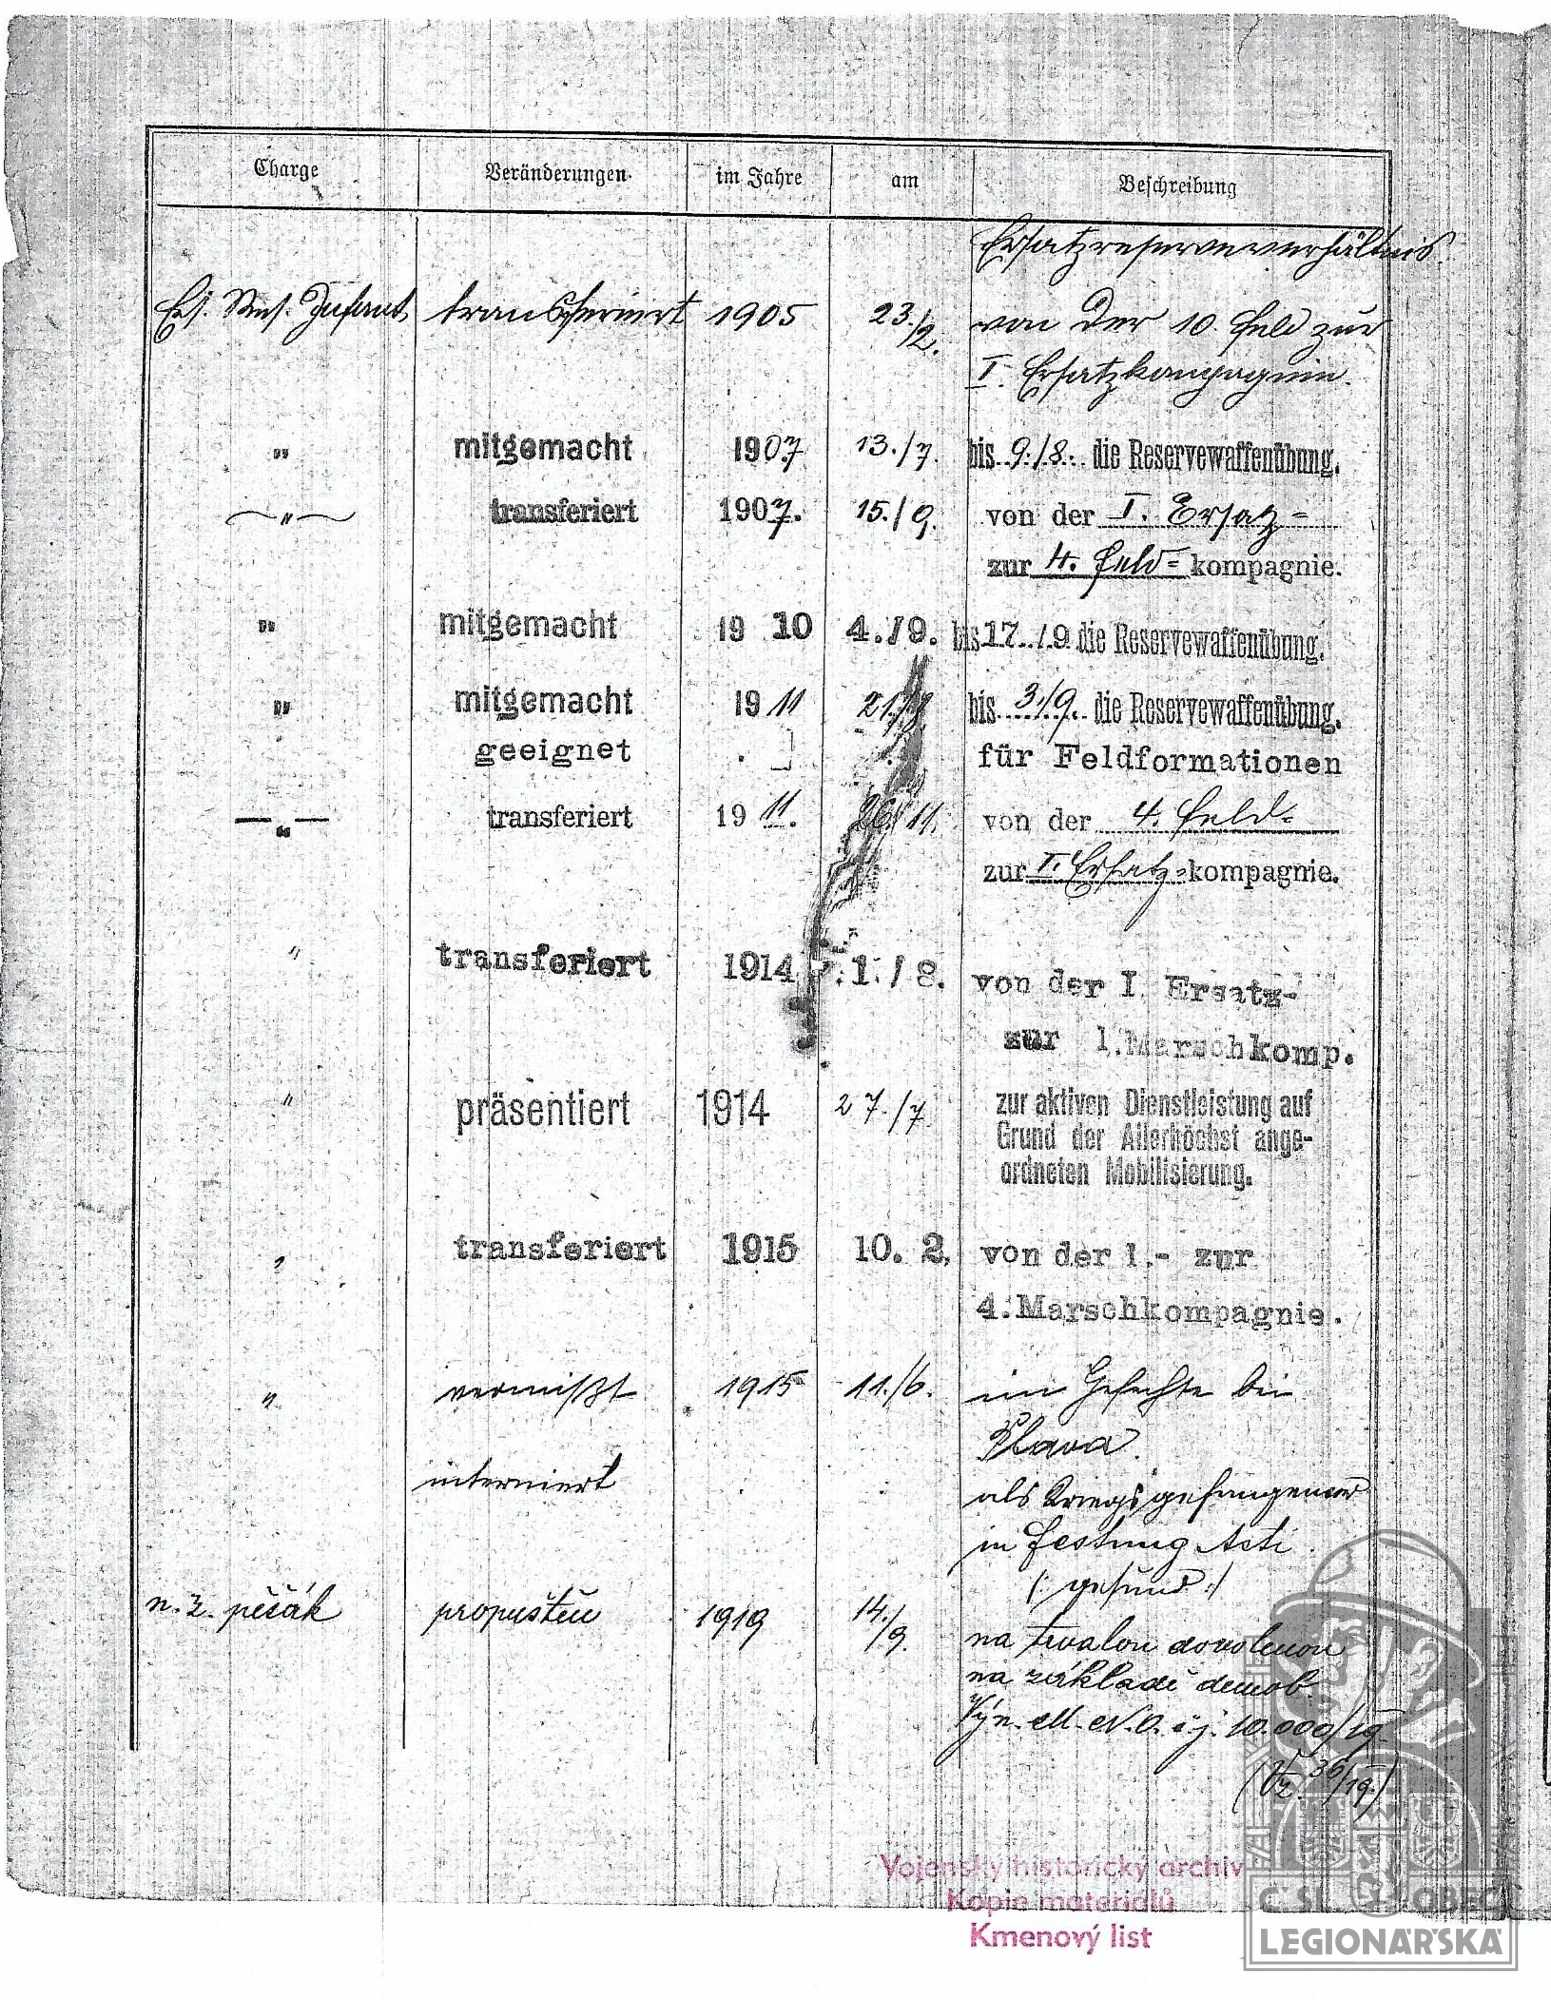 Charge Veränderungen im Jahre am Beschreibung
Ersatzreserveverhältnis.
Ers. Res. Infant. transferiert 1905 23./2. von der 10. Feld zur
I. Ersatzkompagnie.
" mitgemacht 1907 13./7. bis 9./8. die Reservewaffenübung.
" transferiert 1907. 15./9. von der I. Ersatz-
zur 4. Feld= kompagnie.
" mitgemacht 19 10 4./9. bis 17./9 die Reservewaffenübung.
" mitgemacht 19 11 21./8 bis 3./9. die Reservewaffenübung.
geeignet für Feldformationen
" transferiert 19 11. 26/11. von der 4. Feld=
zur I. Ersatz= kompagnie.
" transferiert 1914 1./8. von der I. Ersatz-
zur 1.Marschkomp.
" präsentiert 1914 27./7. zur aktiven Dienstleistung auf
Grund der Allerhöchst ange-
ordneten Mobilisierung.
" transferiert 1915 10. 2. von der 1.- zur
4.Marschkompagnie.
" vermißt 1915 11./6. im Gefechte bei
Plava.
interniert . . als Kriegsgefangener
in Festung Asti.
(: gesund :)
n. z. pěšák propuštěn 1919 14./9. na trvalou dovolenou
na základě demob.
Výn. M.N.O. čj. 10.000/19.
(Vz. 36/19.)
Vojenský historický archiv
Kopie materiálů
Kmenový list
ČSL. OBEC
LEGIONÁŘSKÁ